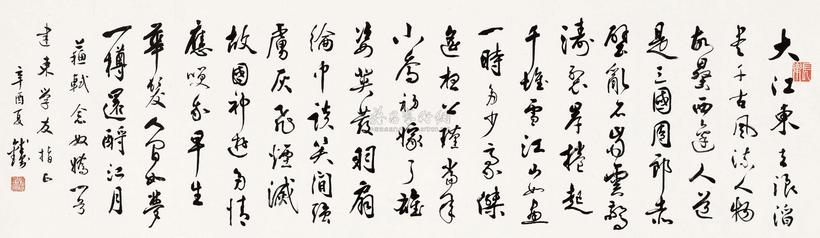 大江東去浪淘
尽千古風流人物
故壘西邊人道
是三國周郎赤
壁亂石崩雲驚
濤裂岸捲起
千堆雪江山如畫
一時多少豪傑
遙想公瑾當年
小喬初嫁了雄
姿英發羽扇
綸巾談笑間強
虜灰飛煙滅
故國神遊多情
應笑我早生
華髮人間如夢
一樽還酹江月
蘇軾念奴嬌
建東学友指正
辛酉夏